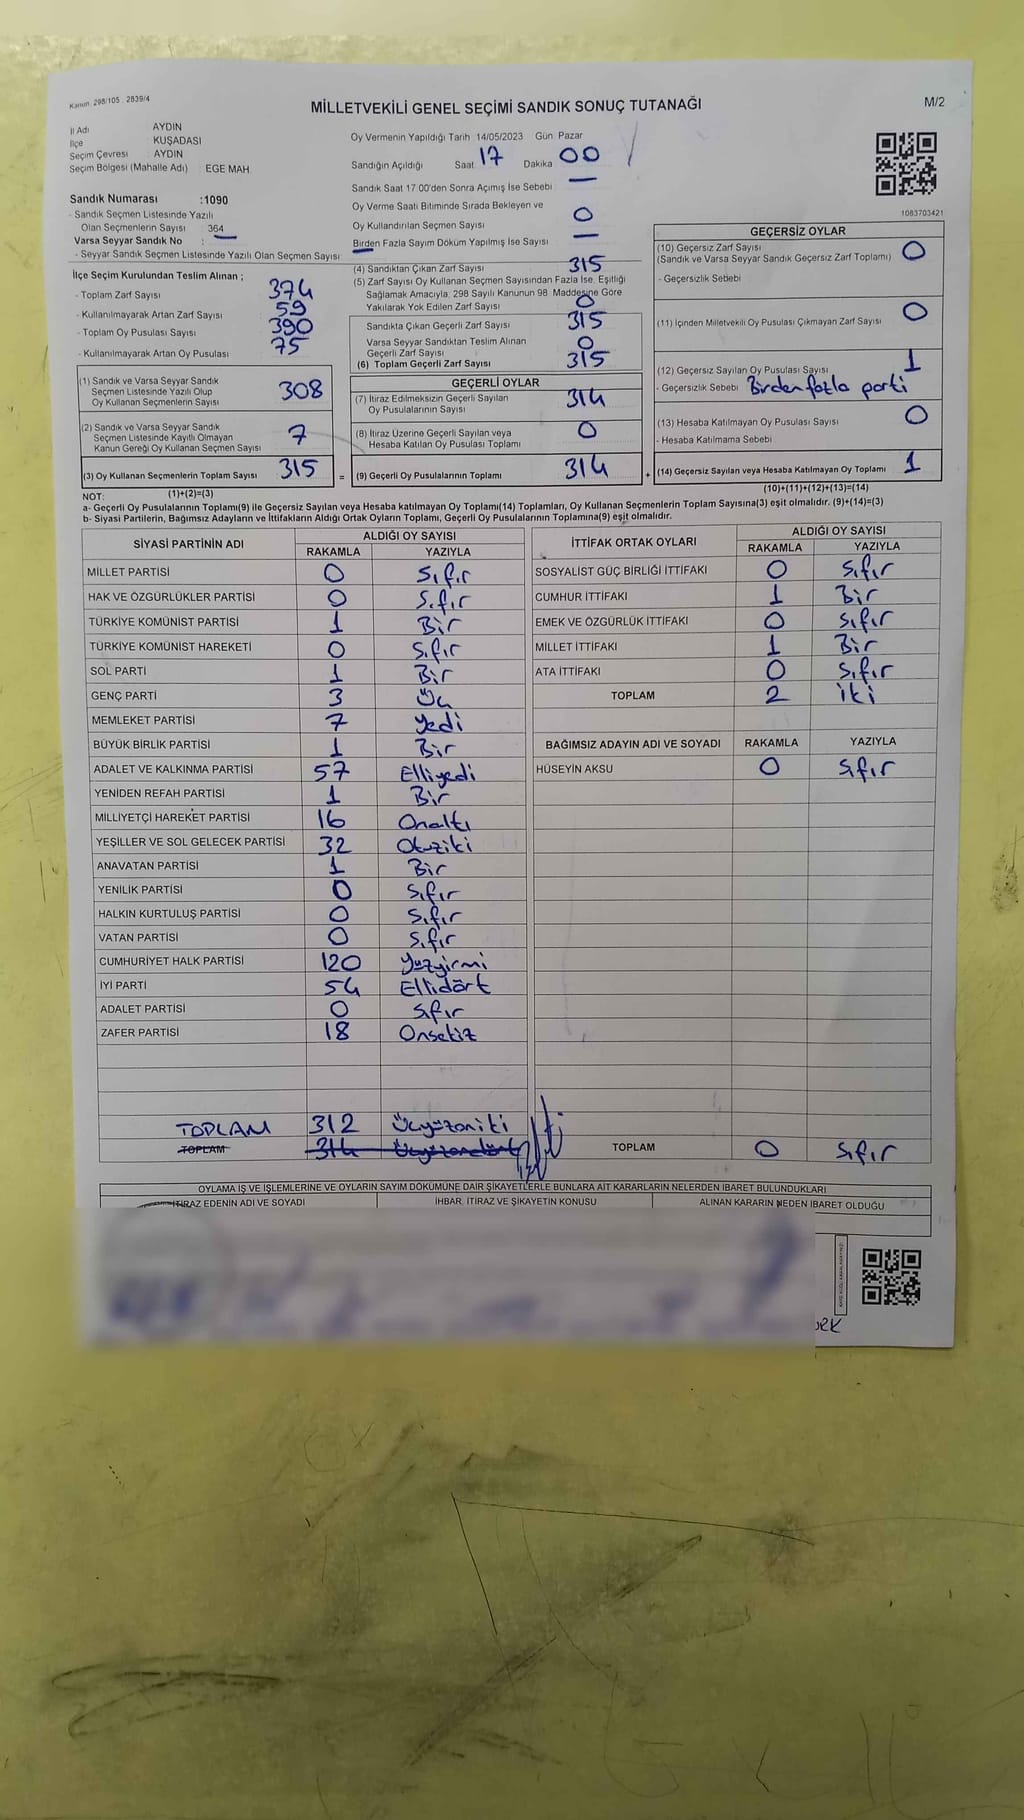 Kanun. 298/105 . 2839/4
MİLLETVEKİLİ GENEL SEÇİMİ SANDIK SONUÇ TUTANAĞI
M/2
İl Adı AYDIN
İlçe KUŞADASI
Seçim Çevresi : AYDIN
Seçim Bölgesi (Mahalle Adı) : EGE MAH.
Sandık Numarası :1090
- Sandık Seçmen Listesinde Yazılı
Olan Seçmenlerin Sayısı 364
Varsa Seyyar Sandık No :
- Seyyar Sandık Seçmen Listesinde Yazılı Olan Seçmen Sayısı:
İlçe Seçim Kurulundan Teslim Alınan ;
- Toplam Zarf Sayısı 374
- Kullanılmayarak Artan Zarf Sayısı 59
- Toplam Oy Pusulası Sayısı 390
- Kullanılmayarak Artan Oy Pusulası 75
(1) Sandık ve Varsa Seyyar Sandık
Seçmen Listesinde Yazılı Olup
Oy Kullanan Seçmenlerin Sayısı 308
(2) Sandık ve Varsa Seyyar Sandık
Seçmen Listesinde Kayıtlı Olmayan
Kanun Gereği Oy Kullanan Seçmen Sayısı 7
(3) Oy Kullanan Seçmenlerin Toplam Sayısı 315 =
(1)+(2)=(3)
Oy Vermenin Yapıldığı Tarih 14/05/2023 Gün Pazar
Sandığın Açıldığı Saat 17 Dakika 00
Sandık Saat 17.00'den Sonra Açımış İse Sebebi —
Oy Verme Saati Bitiminde Sırada Bekleyen ve
Oy Kullandırılan Seçmen Sayısı 0
Birden Fazla Sayım Döküm Yapılmış İse Sayısı —
(4) Sandıktan Çıkan Zarf Sayısı 315
(5) Zarf Sayısı Oy Kullanan Seçmen Sayısından Fazla İse, Eşitliği
Sağlamak Amacıyla, 298 Sayılı Kanunun 98. Maddesine Göre
Yakılarak Yok Edilen Zarf Sayısı 0
Sandıkta Çıkan Geçerli Zarf Sayısı 315
Varsa Seyyar Sandıktan Teslim Alınan
Geçerli Zarf Sayısı 0
(6) Toplam Geçerli Zarf Sayısı 315
GEÇERLİ OYLAR
(7) İtiraz Edilmeksizin Geçerli Sayılan
Oy Pusulalarının Sayısı 314
(8) İtiraz Üzerine Geçerli Sayılan veya
Hesaba Katılan Oy Pusulası Toplamı 0
(9) Geçerli Oy Pusulalarının Toplamı 314 +
1083703421
GEÇERSİZ OYLAR
(10) Geçersiz Zarf Sayısı
(Sandık ve Varsa Seyyar Sandık Geçersiz Zarf Toplamı) 0
- Geçersizlik Sebebi
(11) İçinden Milletvekili Oy Pusulası Çıkmayan Zarf Sayısı 0
(12) Geçersiz Sayılan Oy Pusulası Sayısı 1
- Geçersizlik Sebebi Birden fazla parti
(13) Hesaba Katılmayan Oy Pusulası Sayısı 0
- Hesaba Katılmama Sebebi
(14) Geçersiz Sayılan veya Hesaba Katılmayan Oy Toplamı 1
(10)+(11)+(12)+(13)=(14)
NOT:
a- Geçerli Oy Pusulalarının Toplamı(9) ile Geçersiz Sayılan veya Hesaba katılmayan Oy Toplamı(14) Toplamları, Oy Kullanan Seçmenlerin Toplam Sayısına(3) eşit olmalıdır. (9)+(14)=(3)
b- Siyasi Partilerin, Bağımsız Adayların ve İttifakların Aldığı Ortak Oyların Toplamı, Geçerli Oy Pusulalarının Toplamına(9) eşit olmalıdır.
SİYASİ PARTİNİN ADI ALDIĞI OY SAYISI
RAKAMLA YAZIYLA
MİLLET PARTİSİ 0 Sıfır
HAK VE ÖZGÜRLÜKLER PARTİSİ 0 Sıfır
TÜRKİYE KOMÜNİST PARTİSİ 1 Bir
TÜRKİYE KOMÜNİST HAREKETİ 0 Sıfır
SOL PARTİ 1 Bir
GENÇ PARTİ 3 Üç
MEMLEKET PARTİSİ 7 Yedi
BÜYÜK BİRLİK PARTİSİ 1 Bir
ADALET VE KALKINMA PARTİSİ 57 Elliyedi
YENİDEN REFAH PARTİSİ 1 Bir
MİLLİYETÇİ HAREKET PARTİSİ 16 Onaltı
YEŞİLLER VE SOL GELECEK PARTİSİ 32 Otuziki
ANAVATAN PARTİSİ 1 Bir
YENİLİK PARTİSİ 0 Sıfır
HALKIN KURTULUŞ PARTİSİ 0 Sıfır
VATAN PARTİSİ 0 Sıfır
CUMHURİYET HALK PARTİSİ 120 Yüzyirmi
İYİ PARTİ 54 Ellidört
ADALET PARTİSİ 0 Sıfır
ZAFER PARTİSİ 18 Onsekiz
TOPLAM 312 Üçyüzoniki
TOPLAM 314 Üçyüzondört
İTTİFAK ORTAK OYLARI ALDIĞI OY SAYISI
RAKAMLA YAZIYLA
SOSYALİST GÜÇ BİRLİĞİ İTTİFAKI 0 Sıfır
CUMHUR İTTİFAKI 1 Bir
EMEK VE ÖZGÜRLÜK İTTİFAKI 0 Sıfır
MİLLET İTTİFAKI 1 Bir
ATA İTTİFAKI 0 Sıfır
TOPLAM 2 İki
BAĞIMSIZ ADAYIN ADI VE SOYADI RAKAMLA YAZIYLA
HÜSEYİN AKSU 0 Sıfır
TOPLAM 0 Sıfır
OYLAMA İŞ VE İŞLEMLERİNE VE OYLARIN SAYIM DÖKÜMÜNE DAİR ŞİKAYETLERLE BUNLARA AİT KARARLARIN NELERDEN İBARET BULUNDUKLARI
İTİRAZ EDENİN ADI VE SOYADI İHBAR, İTİRAZ VE ŞİKAYETİN KONUSU ALINAN KARARIN NEDEN İBARET OLDUĞU